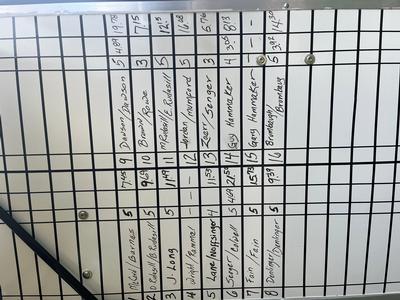 1 McCool/Barnes 5 7.45 9 Dawson/Dawson 5 4.89 19.78
2 D. Rudasill/B. Rudasill 5 9.69 10 Brown/Rowe 3 7.15
3 J. Long 5 11.69 11 M Rudasill/E. Rudasill 5 12.15
4 Wright/Rammel - - - 12 Jordan/Mumford 5 16.08
5 Lane/Noffsinger 4 11.53 13 Zaerr/Senger 3 5.76
6 Senger/Colwell 5 4.69 21.54 14 Guy Hammaker 4 3.00 8.13
7 Fain/Fain 5 15.73 15 Gary Hammaker - - -
8 Deninger/Deninger 5 9.39 16 Brumbaugh/Brumbaug 5 3.92 14.30